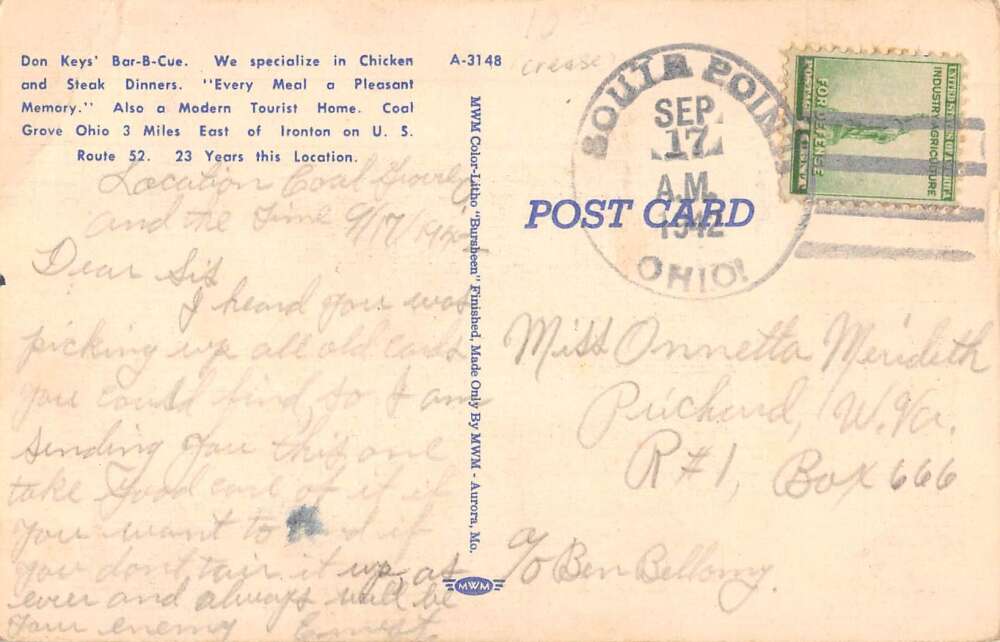 Don Keys' Bar-B-Cue. We specialize in Chicken
and Steak Dinners. "Every Meal a Pleasant
Memory." Also a Modern Tourist Home. Coal
Grove Ohio 3 Miles East of Ironton on U. S.
Route 52. 23 Years this Location.
A-3148
(crease)
Location Coal Grove
and the time 9/17/1942
Dear Sis
I heard you was
picking up all old cards
you could find, so I am
sending you this one
take good care of it if
you want to if
you dont tair it up, as
ever and always will be
your enemy Ernest
MWM Color-Litho "Bursheen" Finished, Made Only By MWM - Aurora, Mo.
MWM
SOUTH POINT
SEP
17
A.M.
1942
OHIO
UNITED STATES OF AMERICA
INDUSTRY AGRICULTURE
FOR DEFENSE
POSTAGE 1 CENT
POST CARD
Miss Onnetta Merideth
Prichard, W. Va.
R#1, Box 666
c/o Ben Bellomy